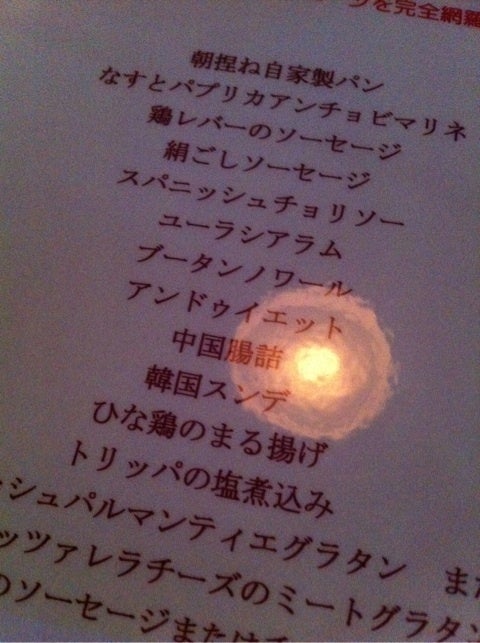 を完全網羅
朝捏ね自家製パン
なすとパプリカアンチョビマリネ
鶏レバーのソーセージ
絹ごしソーセージ
スパニッシュチョリソー
ユーラシアラム
ブータンノワール
アンドゥイエット
中国腸詰
韓国スンデ
ひな鶏のまる揚げ
トリッパの塩煮込み
シュパルマンティエグラタン また
ッツァレラチーズのミートグラタン
のソーセージまたは